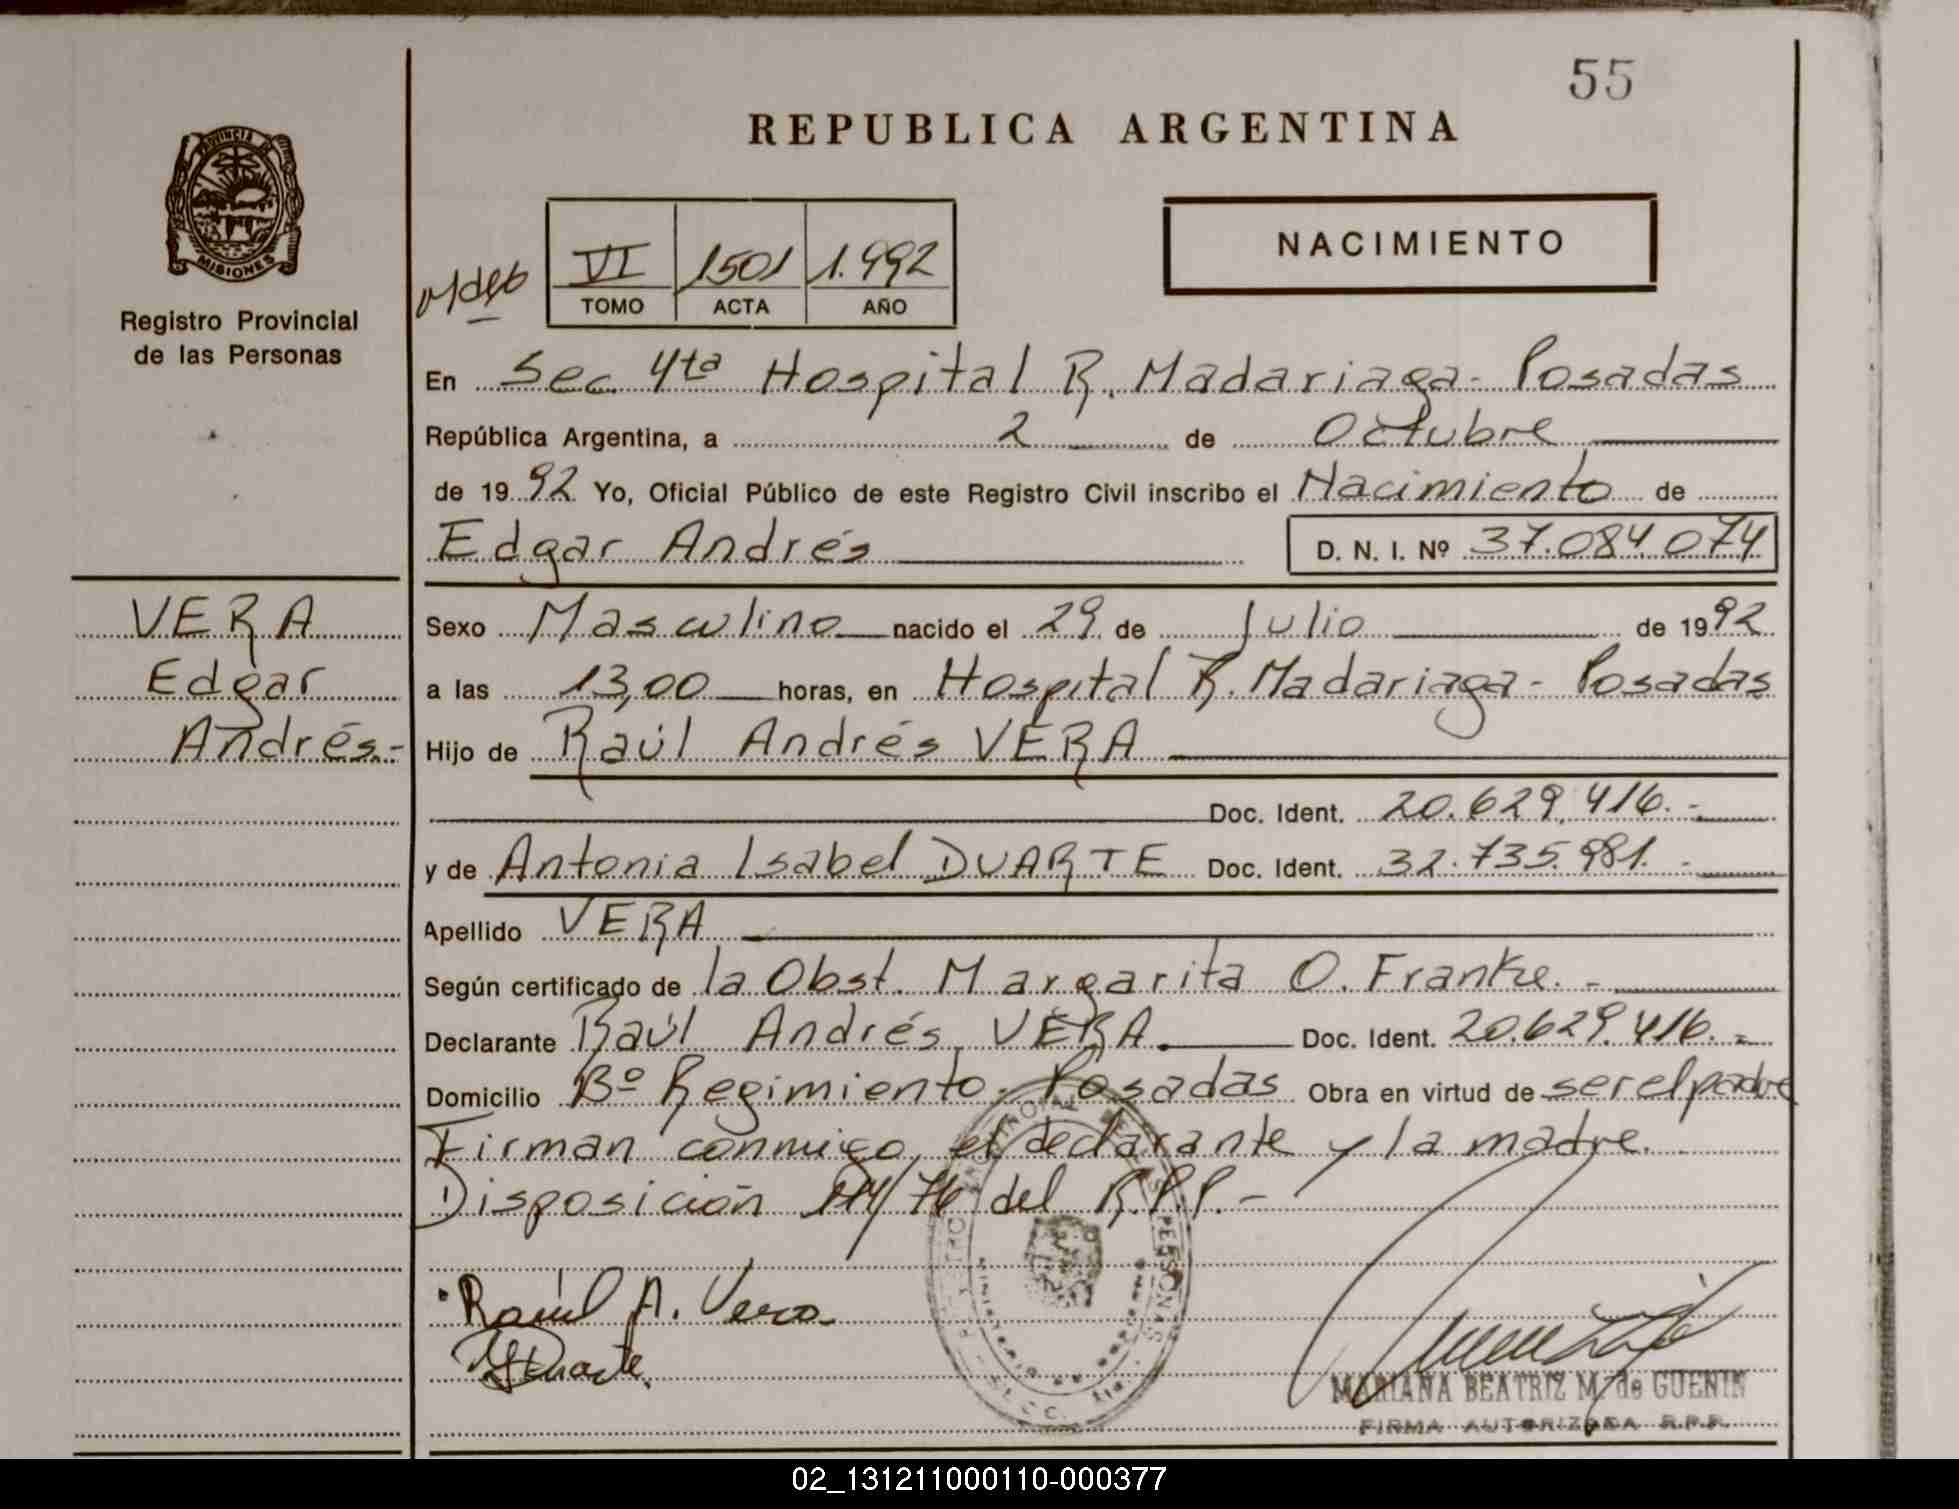 55
REPUBLICA ARGENTINA
PROVINCIA DE
MISIONES
Registro Provincial
de las Personas
VI 1501 1.992
TOMO ACTA AÑO
NACIMIENTO
En Sec. 4ta Hospital R. Madariaga - Posadas
República Argentina, a 2 de Octubre
de 1992 Yo, Oficial Público de este Registro Civil inscribo el Nacimiento de
Edgar Andrés D. N. I. Nº 37.084.074
VERA
Edgar
Andrés.-
Sexo Masculino nacido el 29 de Julio de 1992
a las 13,00 horas, en Hospital R. Madariaga - Posadas
Hijo de Raúl Andrés VERA
Doc. Ident. 20.629.416.-
y de Antonia Isabel DUARTE Doc. Ident. 32.735.981.-
Apellido VERA
Según certificado de la Obst. Margarita O. Franke.-
Declarante Raúl Andrés VERA. Doc. Ident. 20.629.416.-
Domicilio Bº Regimiento - Posadas Obra en virtud de ser el padre
Firman conmigo, el declarante y la madre.
Disposición /76 del R.P.P.-
Raúl A. Vera
Duarte.
MARIANA BEATRIZ M. de GUENIN
FIRMA AUTORIZADA R.P.P.
02_131211000110-000377